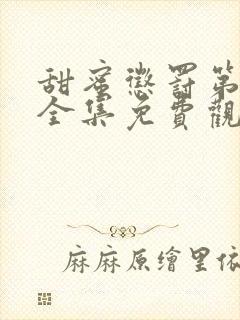 甜蜜懲罰第
全集免費觀
麻麻原繪里依